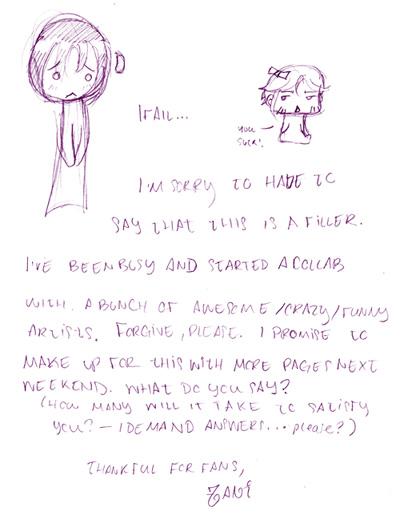 I FAIL...
YOU
SUCK!
I'M SORRY TO HAVE TO
SAY THAT THIS IS A FILLER.
I'VE BEEN BUSY AND STARTED A COLLAB
WITH A BUNCH OF AWESOME/CRAZY/FUNNY
ARTISTS. FORGIVE, PLEASE. I PROMISE TO
MAKE UP FOR THIS WITH MORE PAGES NEXT
WEEKEND. WHAT DO YOU SAY?
(HOW MANY WILL IT TAKE TO SATISFY
YOU? - I DEMAND ANSWERS... please?)
THANKFUL FOR FANS,